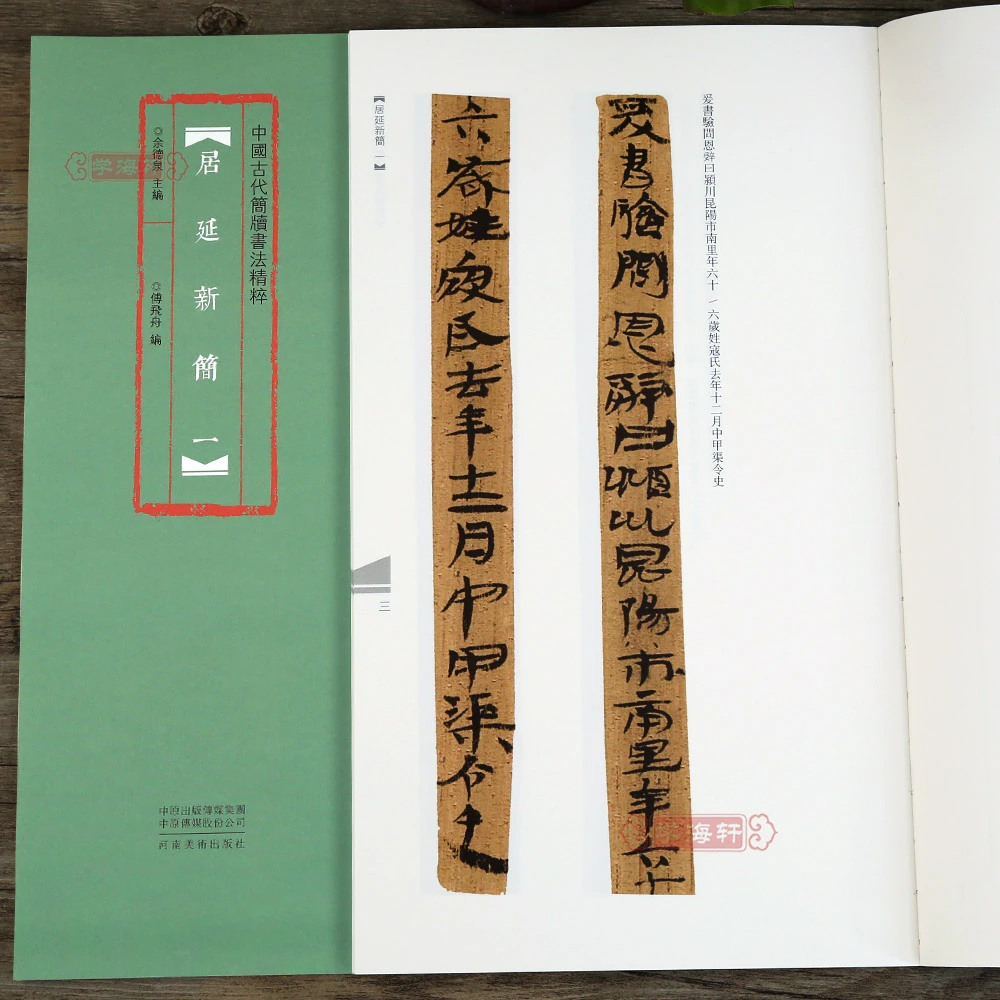 中國古代簡牘書法精粹
【居延新簡 一】
◎余德泉 主編
◎傅飛舟 編
中原出版傳媒集團
中原傳媒股份公司
河南美術出版社
学海轩
爰書驗問恩辤曰潁川昆陽市南里年六十 / 六歲姓寇氏去年十二月中甲渠令史
爰書驗問恩辤曰潁川昆陽市南里年六十
六歲姓寇氏去年十二月中甲渠令史
【居延新簡 一】
三
学海轩